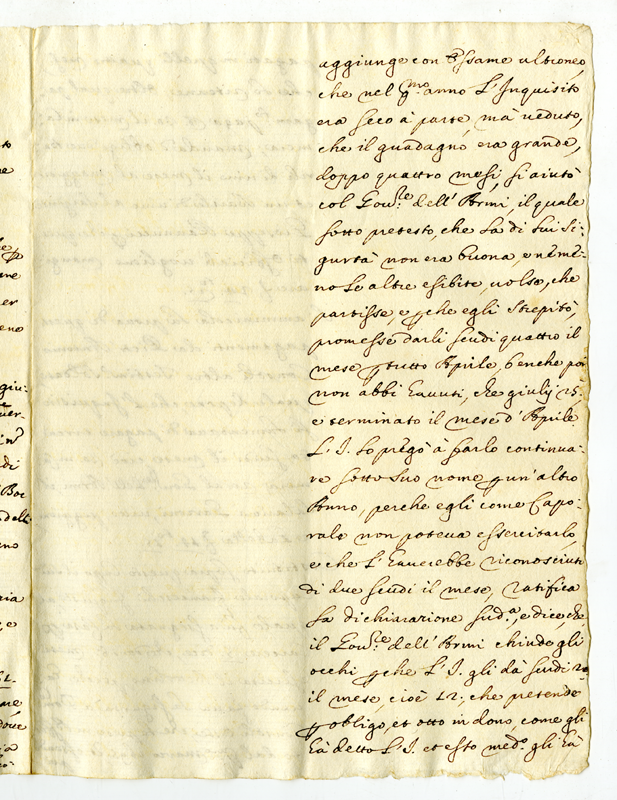 aggiunge con essame ultroneo,
che nel p.mo anno L'Inquisito
era seco à parte, mà veduto,
che il guadagno era grande,
doppo quattro mesi, si aiutò
col Gov.re dell'Armi, il quale
sotto pretesto, che la di lui si:
gurtà non era buona, e nemè:
no le altre esibite, volse, che
partisse, e p che egli strepitò,
promesse darli scudi quattro il
mese p tutto Aprile, benche poi
non abbi havuti, che giulij 25:
e terminato il mese d'Aprile
L'I. lo pregò à farlo continua:
re sotto suo nome p un'altro
Anno, perche egli come Capo:
rale non poteva essercitarlo
e che l'haverebbe riconosciuto
di due scudi il mese, ratifica
la dichiarazione sud.a, e dice, che
il Gov.re dell'Armi chiude gli
occhi p che L'I. gli dà scudi 20
il mese, cioè 12:, che pretende
p obligo, et otto in dono, come gli
hà detto L'I. et esso med.o gli hà